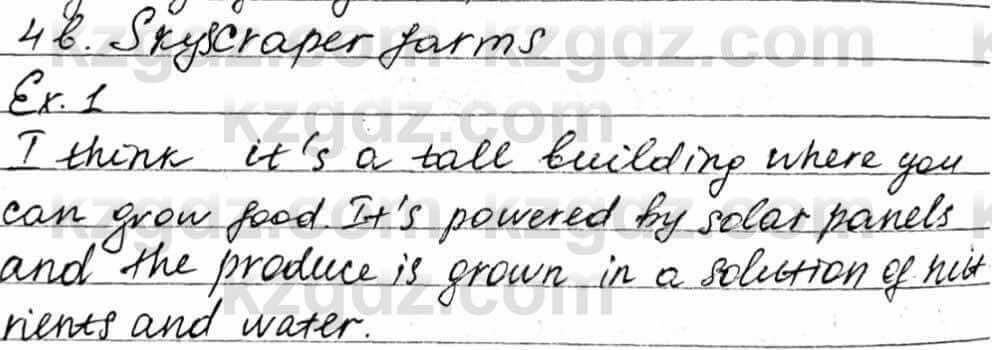 4b. Skyscraper farms
Ex. 1
I think it's a tall building where you
can grow food. It's powered by solar panels
and the produce is grown in a solution of nut
rients and water.
kzgdz.com